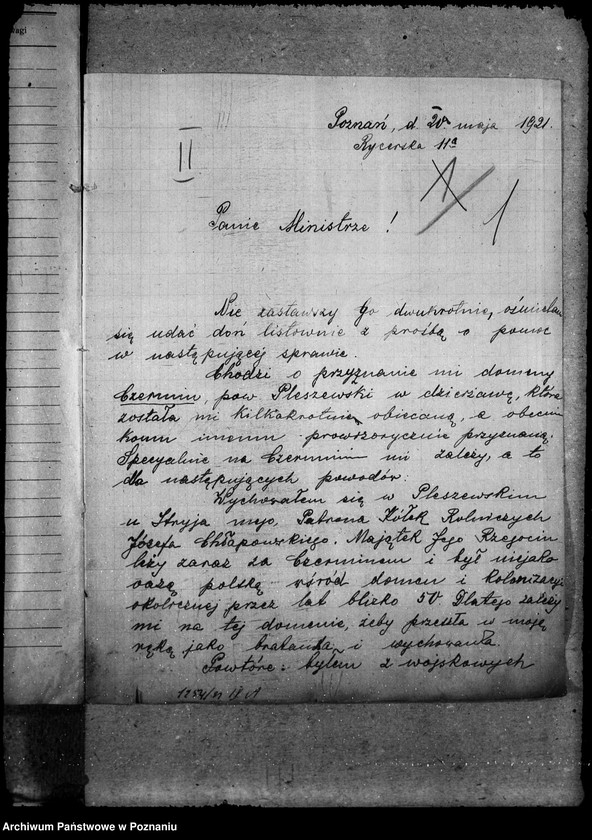 wagi
Poznań, d. 20. maja 1921.
Rycerska 11a
II
1
Panie Ministrze!
Nie zastawszy Go dwukrotnie, ośmielam
się udać doń listownie z prośbą o pomoc
w następującej sprawie.
Chodzi o przyznanie mi domeny
Czermin, pow. Pleszewski w dzierżawę, która
została mi kilkakrotnie obiecaną, a obecnie
komu innemu prowizorycznie przyznaną.
Specyalnie na Czerminie mi zależy, a to
dla następujących powodów:
Wychowałem się w Pleszewskim
u Stryja mego, Patrona Kółek Rolniczych
Józefa Chłapowskiego. Majątek Jego Rzegocin
leży zaraz za Czerminem i był niejako
oazą polską wśród domen i kolonizacji
okolicznej przez lat blizko 50. Dlatego zależy
mi na tej domenie, żeby przeszła w moje
ręką jako bratanka i wychowanka.
Powtóre: byłem z wojskowych
Archiwum Państwowe w Poznaniu